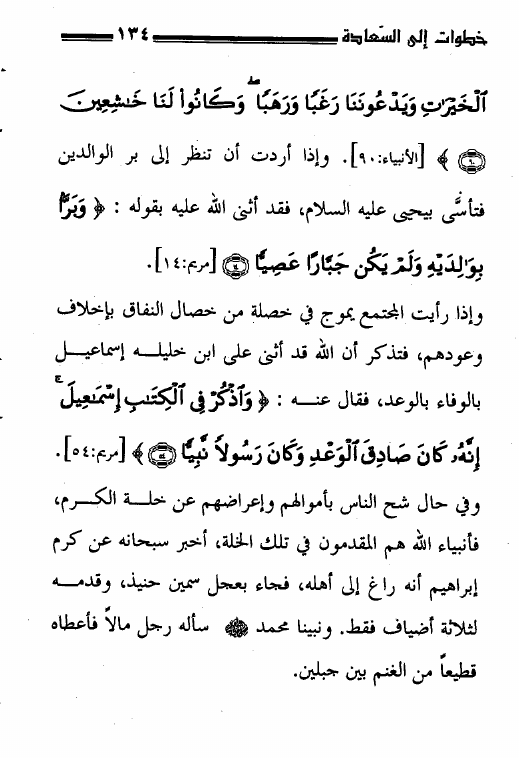 خطوات إلى السّعادة ١٣٤
ٱلْخَيْرَٰتِ وَيَدْعُونَنَا رَغَبًا وَرَهَبًا ۖ وَكَانُوا۟ لَنَا خَٰشِعِينَ
﴿٩٠﴾ ﴾ [الأنبياء:٩٠]. وإذا أردت أن تنظر إلى بر الوالدين
فتأسَّى بيحيى عليه السلام، فقد أثنى الله عليه بقوله : ﴿ وَبَرًّۢا
بِوَٰلِدَيْهِ وَلَمْ يَكُن جَبَّارًا عَصِيًّا ﴿١٤﴾ [مريم:١٤].
وإذا رأيت المجتمع يموج في خصلة من خصال النفاق بإخلاف
وعودهم، فتذكر أن الله قد أثنى على ابن خليله إسماعيل
بالوفاء بالوعد، فقال عنه : ﴿ وَٱذْكُرْ فِى ٱلْكِتَٰبِ إِسْمَٰعِيلَ ۚ
إِنَّهُۥ كَانَ صَادِقَ ٱلْوَعْدِ وَكَانَ رَسُولًا نَّبِيًّا ﴿٥٤﴾ ﴾ [مريم:٥٤].
وفي حال شح الناس بأموالهم وإعراضهم عن خلة الكرم،
فأنبياء الله هم المقدمون في تلك الخلة، أخبر سبحانه عن كرم
إبراهيم أنه راغ إلى أهله، فجاء بعجل سمين حنيذ، وقدمه
لثلاثة أضياف فقط. ونبينا محمد ﷺ سأله رجل مالاً فأعطاه
قطيعاً من الغنم بين جبلين.